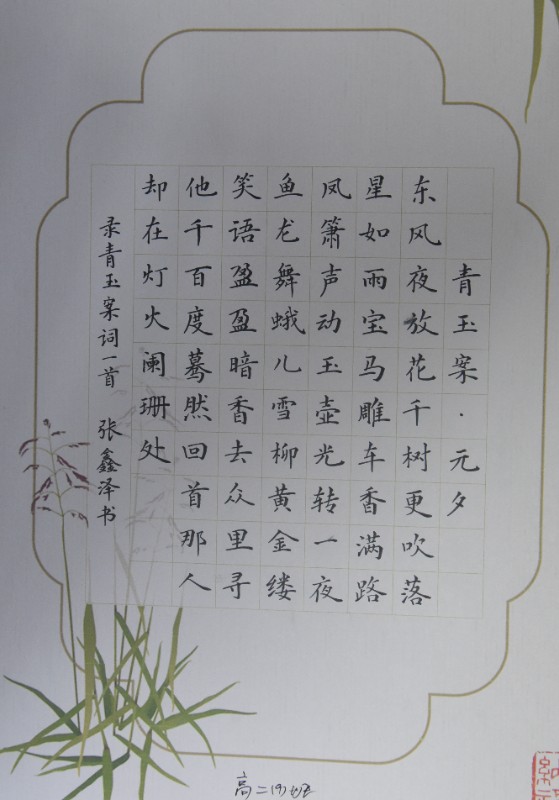 青玉案·元夕
东风夜放花千树更吹落
星如雨宝马雕车香满路
凤箫声动玉壶光转一夜
鱼龙舞蛾儿雪柳黄金缕
笑语盈盈暗香去众里寻
他千百度蓦然回首那人
却在灯火阑珊处
录青玉案词一首 张鑫泽书
高二(9)班